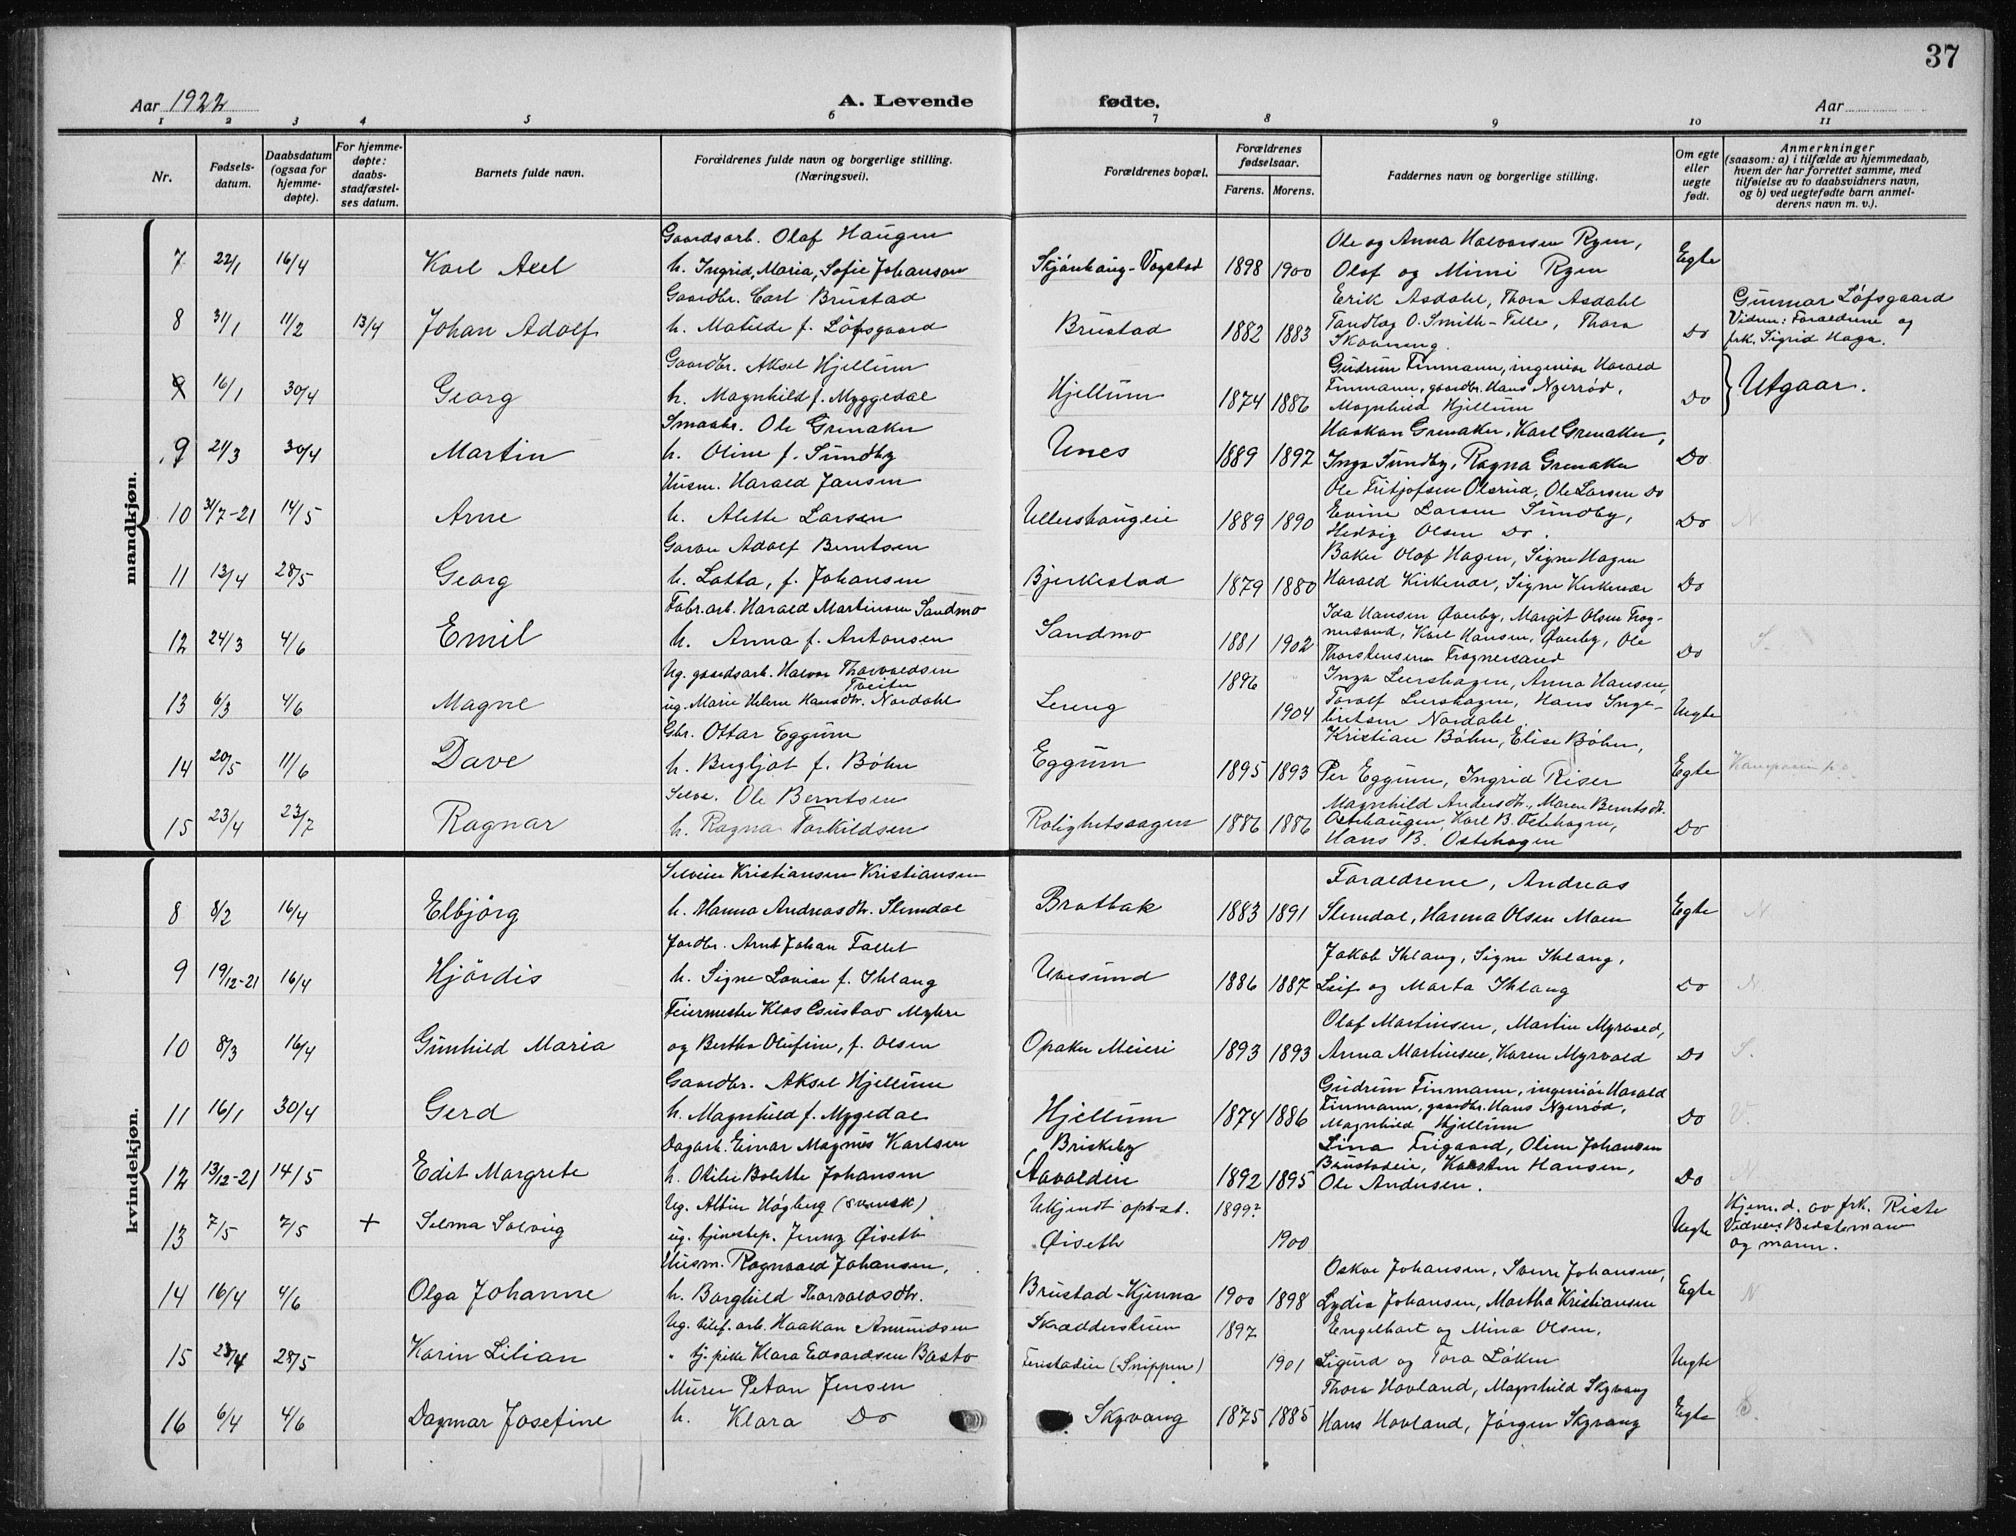 37
Aar 1922
A. Levende
fødte.
Aar
1 2 3 4 5 6 7 8 9 10 11
Nr.
Fødsels-
datum.
Daabsdatum
(ogsaa for
hjemme-
døpte).
For hjemme-
døpte:
daabs-
stadfæstel-
ses datum.
Barnets fulde navn.
Forældrenes fulde navn og borgerlige stilling.
(Næringsvei).
Forældrenes bopæl.
Forældrenes
fødselsaar.
Farens. Morens.
Faddernes navn og borgerlige stilling.
Om egte
eller
uegte
født.
Anmerkninger
(saasom: a) i tilfælde av hjemmedaab,
hvem der har forrettet samme, med
tilføielse av to daabsvidners navn,
og b) ved uegtefødte barn anmel-
derens navn m. v.).
mandkjøn.
Gaardsarb. Olaf Haugen
Ole og Anna Halvorsen Ryen,
7 22/1 16/4 Karl Axel h. Ingrid, Maria, Sofie Johanson Skjønhaug-Vogstad 1898 1900 Olaf og Mimi Ryen Egte
Gaardbr. Carl Brustad
Erik Asdahl, Thora Asdahl
Gunnar Løfsgaard
8 31/1 11/2 13/4 Johan Adolf h. Matilde f. Løfsgaard Brustad 1882 1883 Tandlæg O. Smith-Telle, Thora Do Vidner: Forældrene og
Skovning.
frk. Sigrid Haga.
Gaardbr. Aksel Hjellum
Gudrun Finmann, ingeniør Harald
9 16/1 30/4 Georg h. Magnhild f. Myggedal Hjellum 1874 1886 Finmann, gaardbr. Hans Nyerrød, Do Utgaar.
Magnhild Hjellum
Smaabr. Ole Grenaker
Haakon Grenaker, Karl Grenaker,
9 21/3 30/4 Martin h. Oline f. Sundby Unes 1889 1897 Inga Sundby, Ragna Grenaker Do
Husm. Harald Jansen
Ole Fritjofsen Olsrud, Ole Larsen Do
10 31/7-21 14/5 Arne h. Alette Larsen Ullershaugeie 1889 1890 Evine Larsen Sundby, Do N
Hedvig Olsen Do.
Garver Adolf Berntsen
Baker Olaf Hagen, Signe Hagen
11 13/4 28/5 Georg h. Lotta, f. Johansen Bjerkestad 1879 1880 Harald Kirkenær, Signe Kirkenær Do
Fabr.arb. Harald Martinsen Sandmo
Ida Hansen Øverby, Margit Olsen Frog-
12 24/3 4/6 Emil h. Anna f. Antonsen Sandmo 1881 1902 nersand, Karl Hansen, Øverby, Ole Do S.
Thorstensen Frognersand
Ug. gaardsarb. Halvor Thorvaldsen
Tveiter
Inga Leirshagen, Anna Hansen,
13 6/3 4/6 Magne ug. Marie Helene Hansdtr. Nordahl Lereng 1896 1904 Toralf Leirshagen, Hans Inge- Uegte
britsen Nordahl
Gbr. Ottar Eggum
Kristian Bøhn, Elise Bøhn,
14 20/5 11/6 Dave h. Bergljot f. Bøhn Eggum 1895 1893 Per Eggum, Ingrid Riser Egte
Selve. Ole Berntsen
Magnhild Andersdtr., Maren Berntsdtr.
15 23/4 23/7 Ragnar h. Ragna Torkildsen Rolighetssagen 1886 1886 Ostehaugen, Karl B. Ostehagen, Do
Hans B. Ostehagen
kvindekjøn.
Selveier Kristiansen Kristiansen
Forældrene, Andreas
8 8/2 16/4 Elbjørg h. Hanna Andreasdtr. Slemdal Bratbak 1883 1891 Slemdal, Hanna Olsen Moen Egte N.
Jordbr. Arnt Johan Fallet
Jakob Ihlang, Signe Ihlang,
9 19/12-21 16/4 Hjørdis h. Signe Lovise f. Ihlang Uvesund 1886 1887 Leif og Marta Ihlang Do N.
Feiermester Klas Gustav Myhre
Olaf Martinsen, Martin Myrvold,
10 8/3 16/4 Gunhild Maria og Bertha Olufine, f. Olsen Opaker Meieri 1893 1893 Anna Martinsen, Karen Myrvold Do S.
Gaardbr. Aksel Hjellum
Gudrun Finmann, ingeniør Harald
11 16/1 30/4 Gerd h. Magnhild f. Mygedal Hjellum 1874 1886 Finmann, gaardbr. Hans Nyerrød, Do
Magnhild Hjellum
Dagarb. Einar Magnus Karlsen
Briskeby
Lina Frigaard, Oline Johansen
12 13/12-21 14/5 Edit Margrete h. Otilie Bolette Johansen Aavoldeie 1892 1895 Brustadeie, Karsten Hansen, Do N
Ole Andersen.
Ug. Albin Høgberg (svensk)
Ukjendt oph.st. 1899?
Hjem.d. av frk. Riste
13 7/5 7/5 + Selma Solveig ug. tjenestep. Jenny Øiseth Øiseth 1900 Uegte Vidner Bedstemor
og mann.
Husm. Ragnvald Johansen,
Oskar Johansen, Sverre Johansen,
14 16/4 4/6 Olga Johanne h. Borghild Thorvaldsdtr. Brustad-Kjenna 1900 1898 Lydia Johansen, Martha Kristiansen Egte N
Ug. telef. arb. Haakon Amundsen
Skrædderstuen 1897
Engelhart og Mina Olsen,
15 23/4 28/5 Karin Lilian " tj. pike Klara Edvardsen Basto Feristadeie (Snippen) 1901 Sigurd og Tora Løken Uegte
Murer Petan Jensen
Thora Hovland, Magnhild Skyvang
16 6/4 4/6 Dagmar Josefine h. Klara Do Skyvang 1875 1885 Hans Hovland, Jørgen Skyvang Egte S.